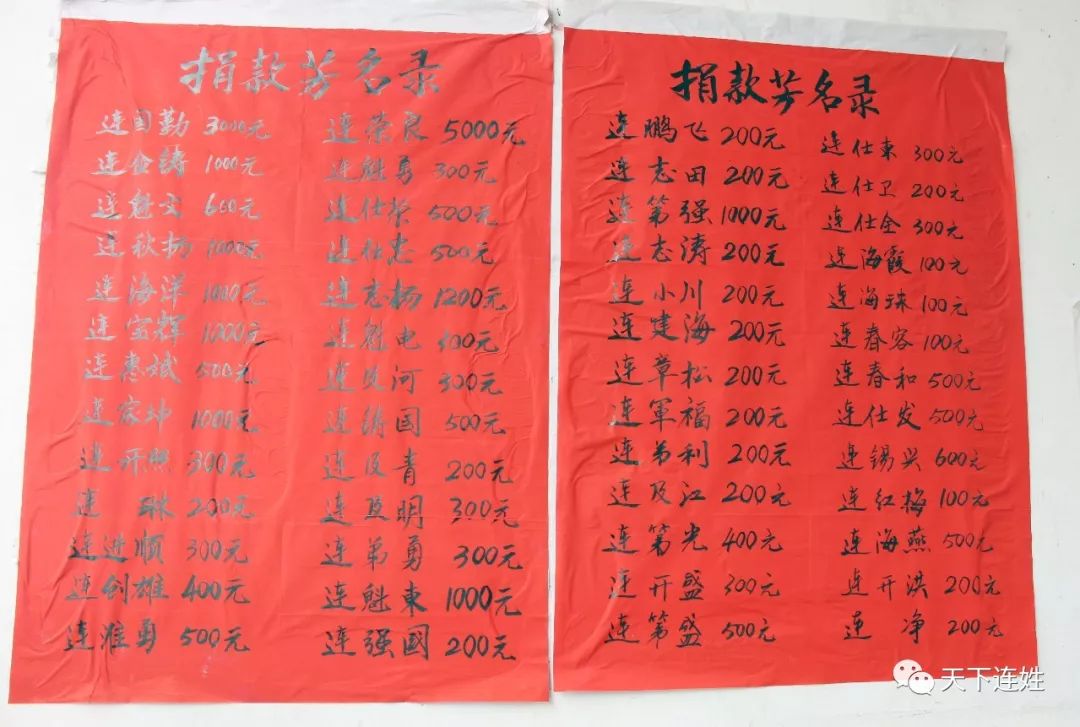 捐款芳名录
连国勤 3000元
连金铸 1000元
连魁文 600元
连秋扬 1000元
连海洋 1000元
连宝辉 1000元
连惠斌 500元
连家坤 1000元
连开熙 300元
连 琳 200元
连进顺 300元
连剑雄 400元
连淮勇 500元
连荣良 5000元
连魁勇 300元
连仕黎 500元
连仕忠 500元
连志杨 1200元
连魁电 300元
连及河 300元
连铸国 500元
连及青 200元
连及明 300元
连弟勇 300元
连魁東 1000元
连强國 200元
捐款芳名录
连鹏飞 200元
连志田 200元
连第强 1000元
连志涛 200元
连小川 200元
连建海 200元
连章松 200元
连軍福 200元
连弟利 200元
连及江 200元
连第光 400元
连开盛 300元
连第盛 500元
连仕東 300元
连仕卫 200元
连仕全 300元
连海霞 100元
连海珠 100元
连春容 100元
连春和 500元
连仕发 500元
连锡兴 600元
连红梅 100元
连海燕 500元
连开洪 200元
连 净 200元
天下连姓